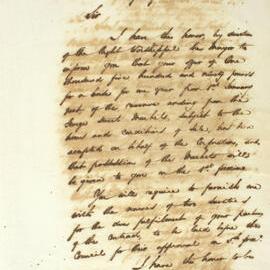 Sir
I have the honor, by direction
of the Right Worshipful the Mayor to
inform you that your offer of One
thousand five hundred and ninety pounds
for a lease for one year from 1st January
next of the revenue arising from the
George Street Markets, subject to the
terms and conditions of sale, has been
accepted on behalf of the Corporation, and
that possession of the Markets will
be given to you on the 1st proximo
You will require to furnish me
with the names of two sureties
for the due fulfilment of your portion
of the contract, to be laid before the
Council for their approval on
I have the honor to be